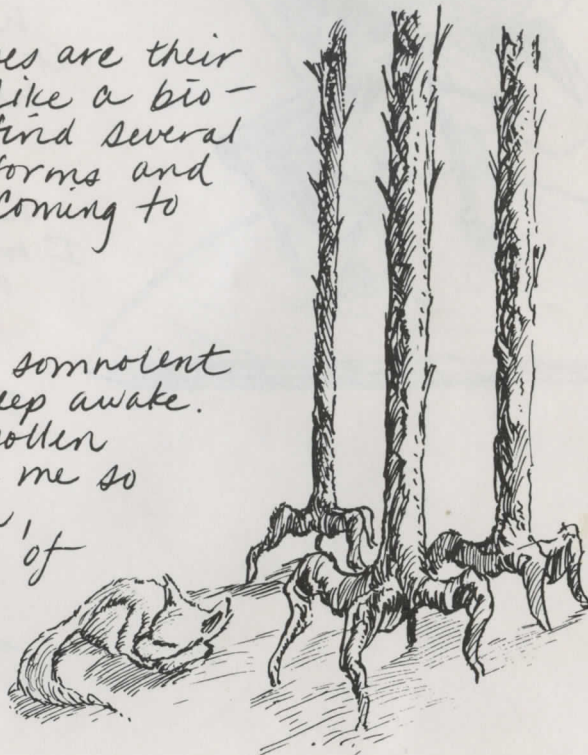 es are their
like a bio-
find several
forms and
coming to
somnolent
eep awake.
ollen
me so
of